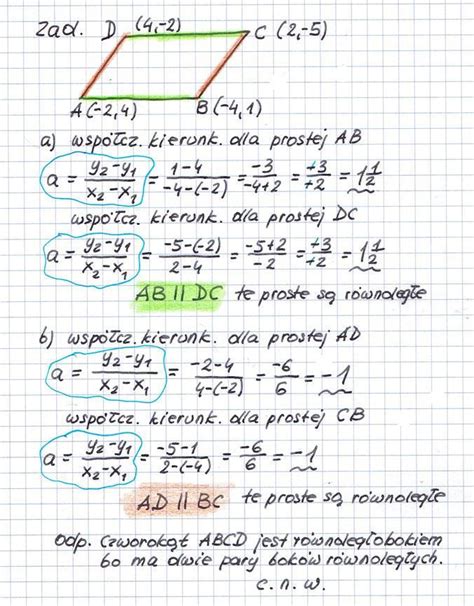 Zad. D (4,-2) C (2,-5)
A(-2,4) B(-4,1)
a) współcz. kierunk. dla prostej AB
a = \frac{y₂-y₁}{x₂-x₁} = \frac{1-4}{-4-(-2)} = \frac{-3}{-4+2} = \frac{+3}{+2} = 1\frac{1}{2}
współcz. kierunk. dla prostej DC
a = \frac{y₂-y₁}{x₂-x₁} = \frac{-5-(-2)}{2-4} = \frac{-5+2}{-2} = \frac{+3}{+2} = 1\frac{1}{2}
AB || DC te proste są równoległe
b) współcz. kierunk. dla prostej AD
a = \frac{y₂-y₁}{x₂-x₁} = \frac{-2-4}{4-(-2)} = \frac{-6}{6} = -1
współcz. kierunk. dla prostej CB
a = \frac{y₂-y₁}{x₂-x₁} = \frac{-5-1}{2-(-4)} = \frac{-6}{6} = -1
AD || BC te proste są równoległe
Odp. Czworokąt ABCD jest równoległobokiem
bo ma dwie pary boków równoległych.
c. n. w.